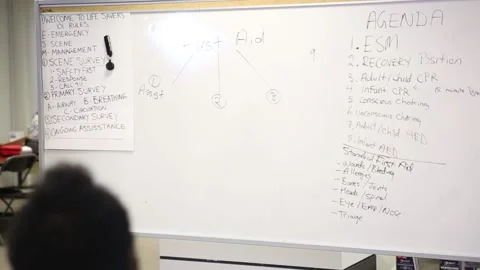 WELCOME TO LIFE SAVERS
101 RULES
E-EMERGENCY
S-SCENE
M-MANAGEMENT
① SCENE SURVEY
1-SAFETY FIRST
2-RESPONSE
3-CALL
② PRIMARY SURVEY
A-AIRWAY B-BREATHING
C-CIRCULATION
③ SECONDARY SURVEY
④ ONGOING ASSISSTANCE
First Aid
①
Assist
②
③
9.
AGENDA
1. ESM
2. RECOVERY POSITION
3. Adult/child CPR
4. Infant CPR
5. Conscious Choking
6. Unconscious Choking
7. Adult/child AED
8. Infant AED
Standard First Aid
- Wounds/Bleeding
- Allergies
- Bones/Joints
- Head/Spinal
- Eye/Ear/Nose
- Triage